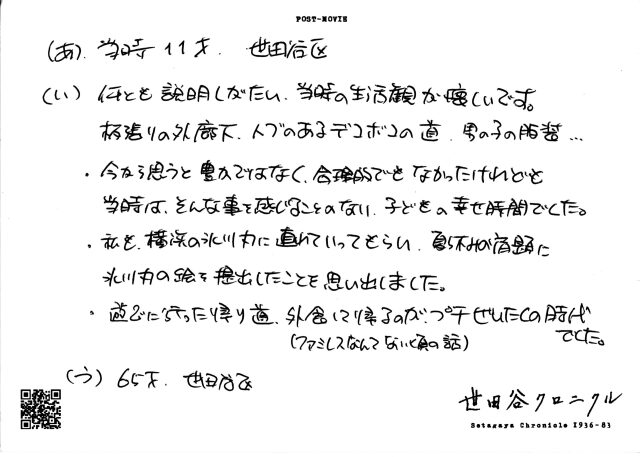 POST-MOVIE
(あ). 当時 11才. 世田谷区
(い) 何とも説明しがたい、当時の生活観が懐しいです。
板張りの外廊下、人プのあるデコボコの道、男の子の服装…
・今から思うと豊かではなく、合理的でもなかったけれども
当時は、そんな事を感じることのない、子どもの幸せ時間でした。
・私も、横浜の氷川丸に連れていってもらい、夏休みの宿題に
氷川丸の絵を提出したことを思い出しました。
・遊びに行った帰り道、外食して帰るのが、プチぜいたくの時代
でした。
(ファミレスなんてない頃の話)
(う) 65才. 世田谷区
世田谷クロニクル
Setagaya Chronicle 1936-83